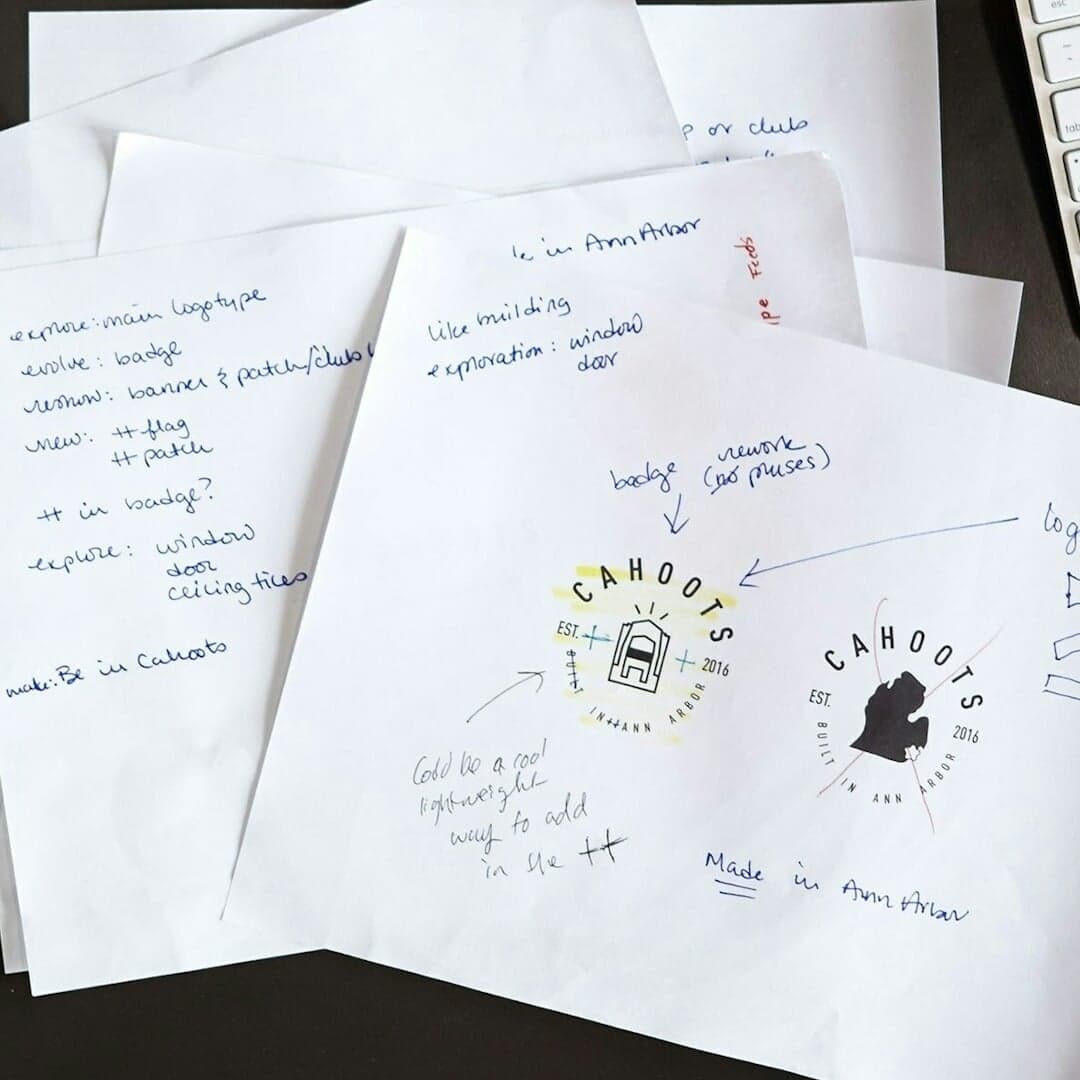 esc
tab
or club
in Ann Arbor
Feeds
explore: main logotype
evolve: badge
banner & patch/club
new: ++ flag
++ patch
++ in badge?
explore: window
door
ceiling tiles
make: Be in Cahoots
Like building
exploration: window
door
badge rework
(no pluses)
CAHOOTS
EST. + + 2016
BUILT IN++ANN ARBOR
Could be a cool
lightweight
way to add
in the ++
CAHOOTS
EST. 2016
BUILT IN ANN ARBOR
Made in Ann Arbor